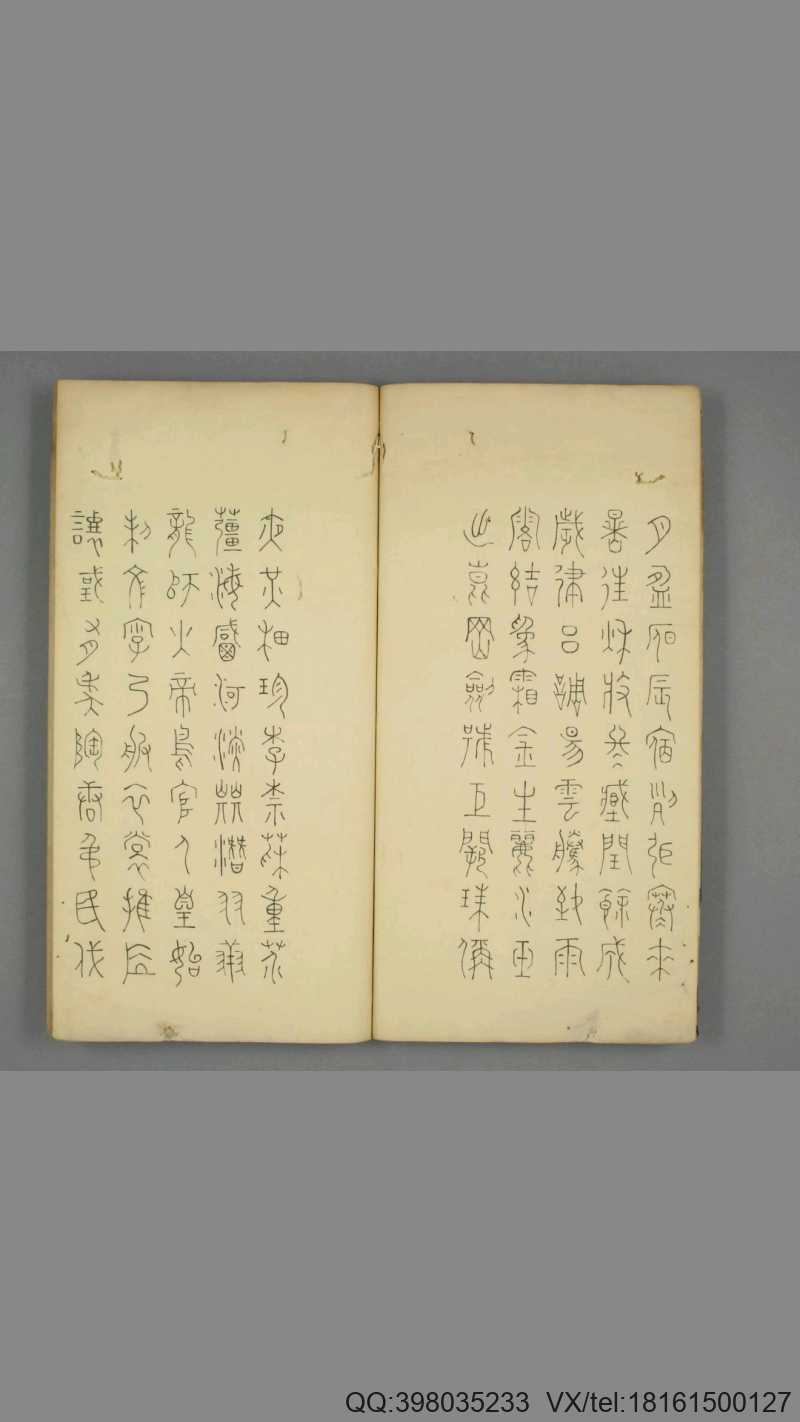 月盈昃辰宿列張寒來
暑往秋收冬藏閏餘成
歲律呂調陽雲騰致雨
露結為霜金生麗水玉
出崑岡劍號巨闕珠稱
夜光果珍李柰菜重芥
薑海鹹河淡鱗潛羽翔
龍師火帝鳥官人皇始
制文字乃服衣裳推位
讓國有虞陶唐弔民伐
QQ:398035233 VX/tel:18161500127